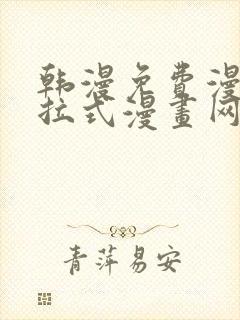 韩漫免费漫
拉式漫畫网
青萍易安